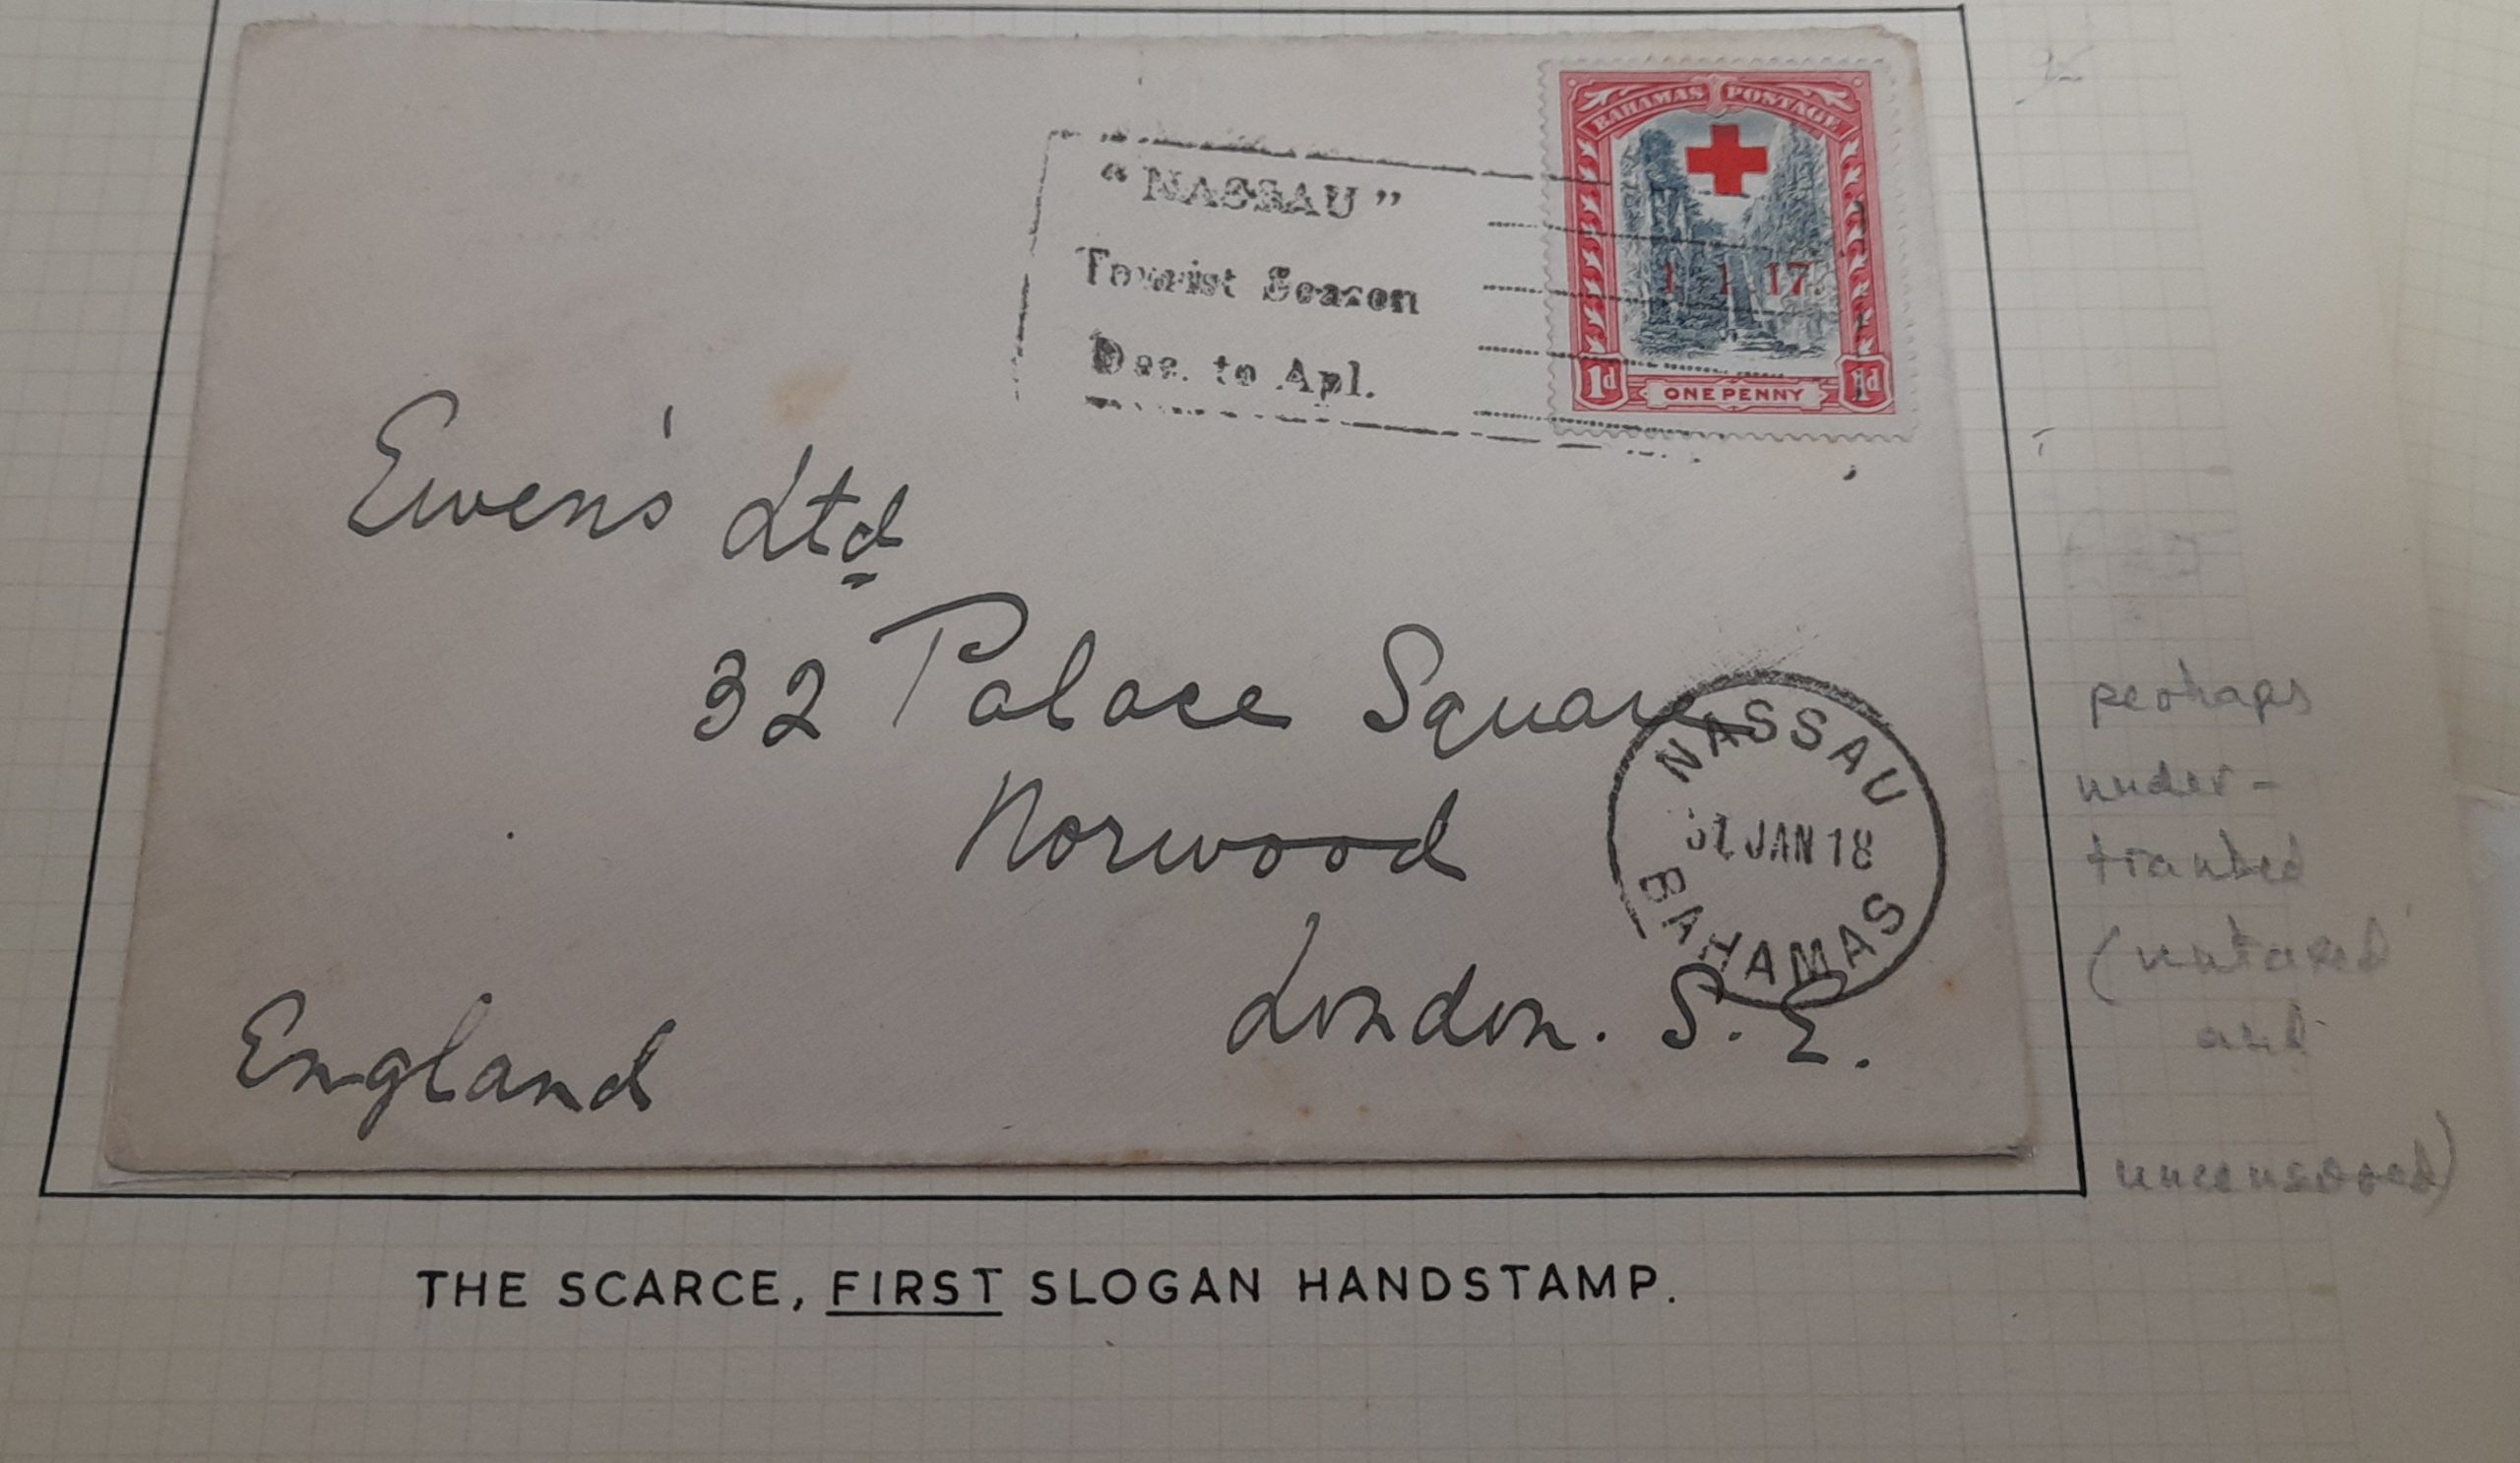 BAHAMAS POSTAGE
1 1 17.
1d ONE PENNY 1d
"NASSAU"
Tourist Season
Dec. to Apl.
Ewen's Ltd
32 Palace Square
Norwood
London. S. E.
England
NASSAU
JAN 18
BAHAMAS
perhaps
under-
franked
(untaxed
and
uncensored)
THE SCARCE, FIRST SLOGAN HANDSTAMP.